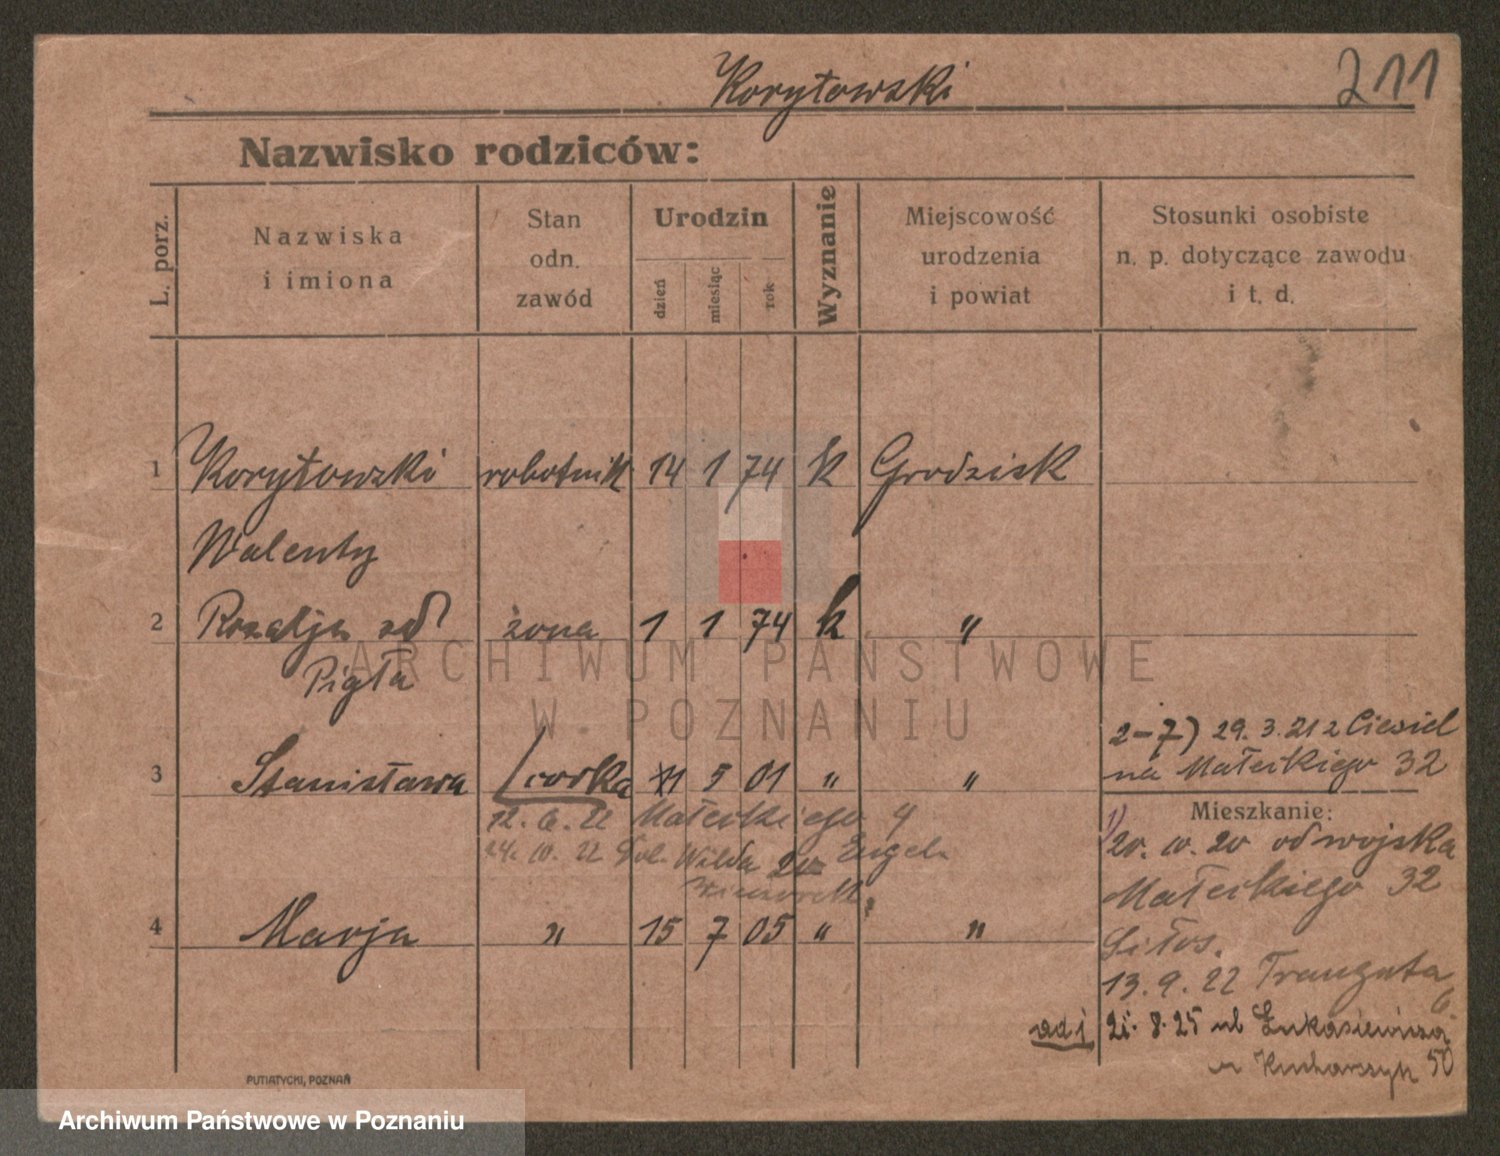 Korytowski
211
Nazwisko rodziców:
L. porz.
Nazwiska
i imiona
Stan
odn.
zawód
Urodzin
dzień
miesiąc
rok
Wyznanie
Miejscowość
urodzenia
i powiat
Stosunki osobiste
n. p. dotyczące zawodu
i t. d.
1 Korytowski robotnik 14 1 74 k Grodzisk
Walenty
2 Rozalja żona 1 1 74 k "
Pigła
ARCHIWUM PAŃSTWOWE
W POZNANIU
2-7) 29.3.21 z Ciesiel
na Małeckiego 32
3 Stanisława córka 5 01 " "
Mieszkanie:
12. 6. 22 Małeckiego 4
1) 20. 10. 20 od wojska
24. 10. 22 Wilda Engel
Małeckiego 32
4 Marja " 15 7 05 " "
13. 9. 22 Traugutta
6.
21. 8. 25 ul Łukasiewicza
50
u Kucharszyk
PUTIATYCKI, POZNAŃ
Archiwum Państwowe w Poznaniu